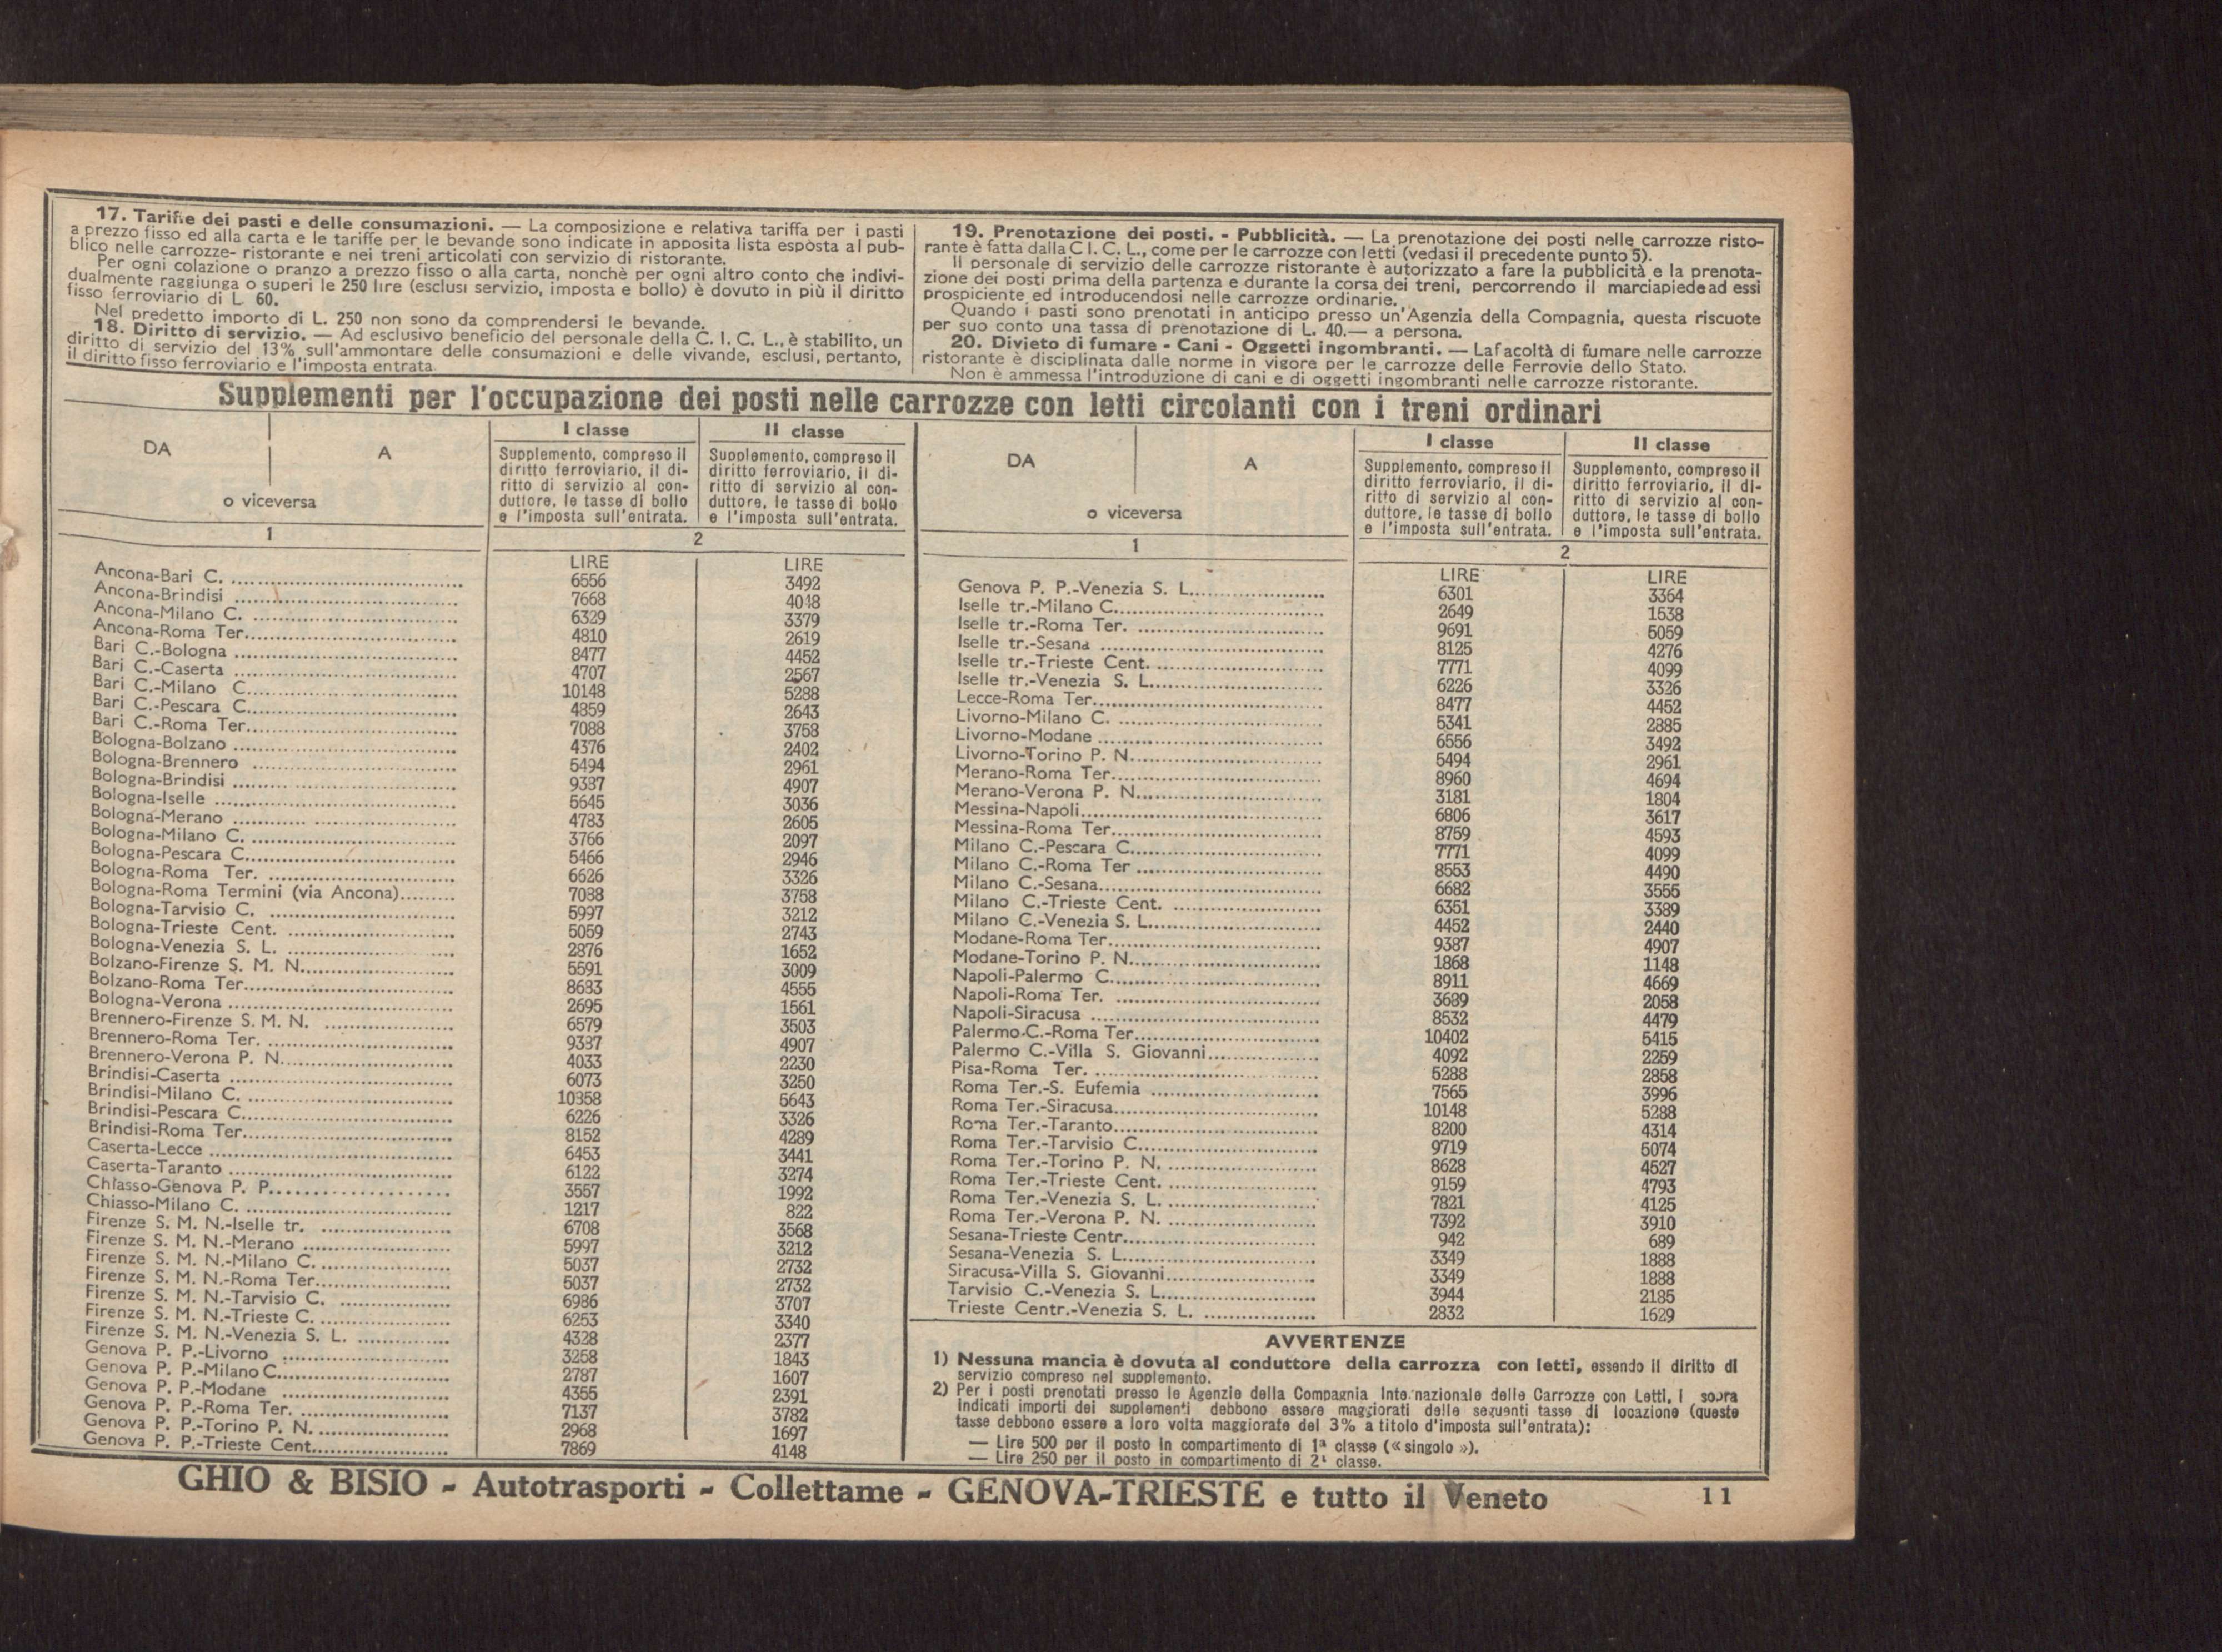 17. Tariffe dei pasti e delle consumazioni. — La composizione e relativa tariffa per i pasti
a prezzo fisso ed alla carta e le tariffe per le bevande sono indicate in apposita lista esposta al pub-
blico nelle carrozze- ristorante e nei treni articolati con servizio di ristorante.
Per ogni colazione o pranzo a prezzo fisso o alla carta, nonchè per ogni altro conto che indivi-
dualmente raggiunga o superi le 250 lire (esclusi servizio, imposta e bollo) è dovuto in più il diritto
fisso ferroviario di L 60.
Nel predetto importo di L. 250 non sono da comprendersi le bevande.
18. Diritto di servizio. — Ad esclusivo beneficio del personale della C. I. C. L., è stabilito, un
diritto di servizio del 13% sull'ammontare delle consumazioni e delle vivande, esclusi, pertanto,
il diritto fisso ferroviario e l'imposta entrata
19. Prenotazione dei posti. - Pubblicità. — La prenotazione dei posti nelle carrozze risto-
rante è fatta dalla C I. C. L., come per le carrozze con letti (vedasi il precedente punto 5).
Il personale di servizio delle carrozze ristorante è autorizzato a fare la pubblicità e la prenota-
zione dei posti prima della partenza e durante la corsa dei treni, percorrendo il marciapiede ad essi
prospiciente ed introducendosi nelle carrozze ordinarie.
Quando i pasti sono prenotati in anticipo presso un'Agenzia della Compagnia, questa riscuote
per suo conto una tassa di prenotazione di L. 40.— a persona.
20. Divieto di fumare - Cani - Oggetti ingombranti. — La facoltà di fumare nelle carrozze
ristorante è disciplinata dalle norme in vigore per le carrozze delle Ferrovie dello Stato.
Non è ammessa l'introduzione di cani e di oggetti ingombranti nelle carrozze ristorante.
Supplementi per l'occupazione dei posti nelle carrozze con letti circolanti con i treni ordinari
DA A
o viceversa
I classe
Supplemento, compreso il
diritto ferroviario, il di-
ritto di servizio al con-
duttore, le tasse di bollo
e l'imposta sull'entrata.
II classe
Supplemento, compreso il
diritto ferroviario, il di-
ritto di servizio al con-
duttore, le tasse di bollo
e l'imposta sull'entrata.
1 2
LIRE LIRE
Ancona-Bari C. 6556 3492
Ancona-Brindisi 7668 4048
Ancona-Milano C. 6329 3379
Ancona-Roma Ter. 4810 2619
Bari C.-Bologna 8477 4452
Bari C.-Caserta 4707 2567
Bari C.-Milano C. 10148 5288
Bari C.-Pescara C. 4859 2643
Bari C.-Roma Ter. 7088 3758
Bologna-Bolzano 4376 2402
Bologna-Brennero 5494 2961
Bologna-Brindisi 9387 4907
Bologna-Iselle 5645 3036
Bologna-Merano 4783 2605
Bologna-Milano C. 3766 2097
Bologna-Pescara C. 5466 2946
Bologna-Roma Ter. 6626 3326
Bologna-Roma Termini (via Ancona) 7088 3758
Bologna-Tarvisio C. 5997 3212
Bologna-Trieste Cent. 5059 2743
Bologna-Venezia S. L. 2876 1652
Bolzano-Firenze S. M. N. 5591 3009
Bolzano-Roma Ter. 8683 4555
Bologna-Verona 2695 1561
Brennero-Firenze S. M. N. 6579 3503
Brennero-Roma Ter. 9387 4907
Brennero-Verona P. N. 4033 2230
Brindisi-Caserta 6073 3250
Brindisi-Milano C. 10358 5643
Brindisi-Pescara C. 6226 3326
Brindisi-Roma Ter. 8152 4289
Caserta-Lecce 6453 3441
Caserta-Taranto 6122 3274
Chiasso-Genova P. P. 3557 1992
Chiasso-Milano C. 1217 822
Firenze S. M. N.-Iselle tr. 6708 3568
Firenze S. M. N.-Merano 5997 3212
Firenze S. M. N.-Milano C. 5037 2732
Firenze S. M. N.-Roma Ter. 5037 2732
Firenze S. M. N.-Tarvisio C. 6986 3707
Firenze S. M. N.-Trieste C. 6253 3340
Firenze S. M. N.-Venezia S. L. 4328 2377
Genova P. P.-Livorno 3258 1843
Genova P. P.-Milano C. 2787 1607
Genova P. P.-Modane 4355 2391
Genova P. P.-Roma Ter. 7137 3782
Genova P. P.-Torino P. N. 2968 1697
Genova P. P.-Trieste Cent. 7869 4148
DA A
o viceversa
I classe
Supplemento, compreso il
diritto ferroviario, il di-
ritto di servizio al con-
duttore, le tasse di bollo
e l'imposta sull'entrata.
II classe
Supplemento, compreso il
diritto ferroviario, il di-
ritto di servizio al con-
duttore, le tasse di bollo
e l'imposta sull'entrata.
1 2
LIRE LIRE
Genova P. P.-Venezia S. L. 6301 3364
Iselle tr.-Milano C. 2649 1538
Iselle tr.-Roma Ter. 9691 5059
Iselle tr.-Sesana 8125 4276
Iselle tr.-Trieste Cent. 7771 4099
Iselle tr.-Venezia S. L. 6226 3326
Lecce-Roma Ter. 8477 4452
Livorno-Milano C. 5341 2885
Livorno-Modane 6556 3492
Livorno-Torino P. N. 5494 2961
Merano-Roma Ter. 8960 4694
Merano-Verona P. N. 3181 1804
Messina-Napoli 6806 3617
Messina-Roma Ter. 8759 4593
Milano C.-Pescara C. 7771 4099
Milano C.-Roma Ter 8553 4490
Milano C.-Sesana 6682 3555
Milano C.-Trieste Cent. 6351 3389
Milano C.-Venezia S. L. 4452 2440
Modane-Roma Ter. 9387 4907
Modane-Torino P. N. 1868 1148
Napoli-Palermo C. 8911 4669
Napoli-Roma Ter. 3689 2058
Napoli-Siracusa 8532 4479
Palermo C.-Roma Ter. 10402 5415
Palermo C.-Villa S. Giovanni 4092 2259
Pisa-Roma Ter. 5288 2858
Roma Ter.-S. Eufemia 7565 3996
Roma Ter.-Siracusa 10148 5288
Roma Ter.-Taranto 8200 4314
Roma Ter.-Tarvisio C. 9719 5074
Roma Ter.-Torino P. N. 8628 4527
Roma Ter.-Trieste Cent. 9159 4793
Roma Ter.-Venezia S. L. 7821 4125
Roma Ter.-Verona P. N. 7392 3910
Sesana-Trieste Centr. 942 689
Sesana-Venezia S. L. 3349 1888
Siracusa-Villa S. Giovanni 3349 1888
Tarvisio C.-Venezia S. L. 3944 2185
Trieste Centr.-Venezia S. L. 2832 1629
AVVERTENZE
1) Nessuna mancia è dovuta al conduttore della carrozza con letti, essendo il diritto di
servizio compreso nel supplemento.
2) Per i posti prenotati presso le Agenzie della Compagnia Internazionale delle Carrozze con Letti, i sopra
indicati importi dei supplementi debbono essere maggiorati delle seguenti tasse di locazione (queste
tasse debbono essere a loro volta maggiorate del 3% a titolo d'imposta sull'entrata):
— Lire 500 per il posto in compartimento di 1ª classe (« singolo »).
— Lire 250 per il posto in compartimento di 2ª classe.
GHIO & BISIO - Autotrasporti - Collettame - GENOVA-TRIESTE e tutto il Veneto 11